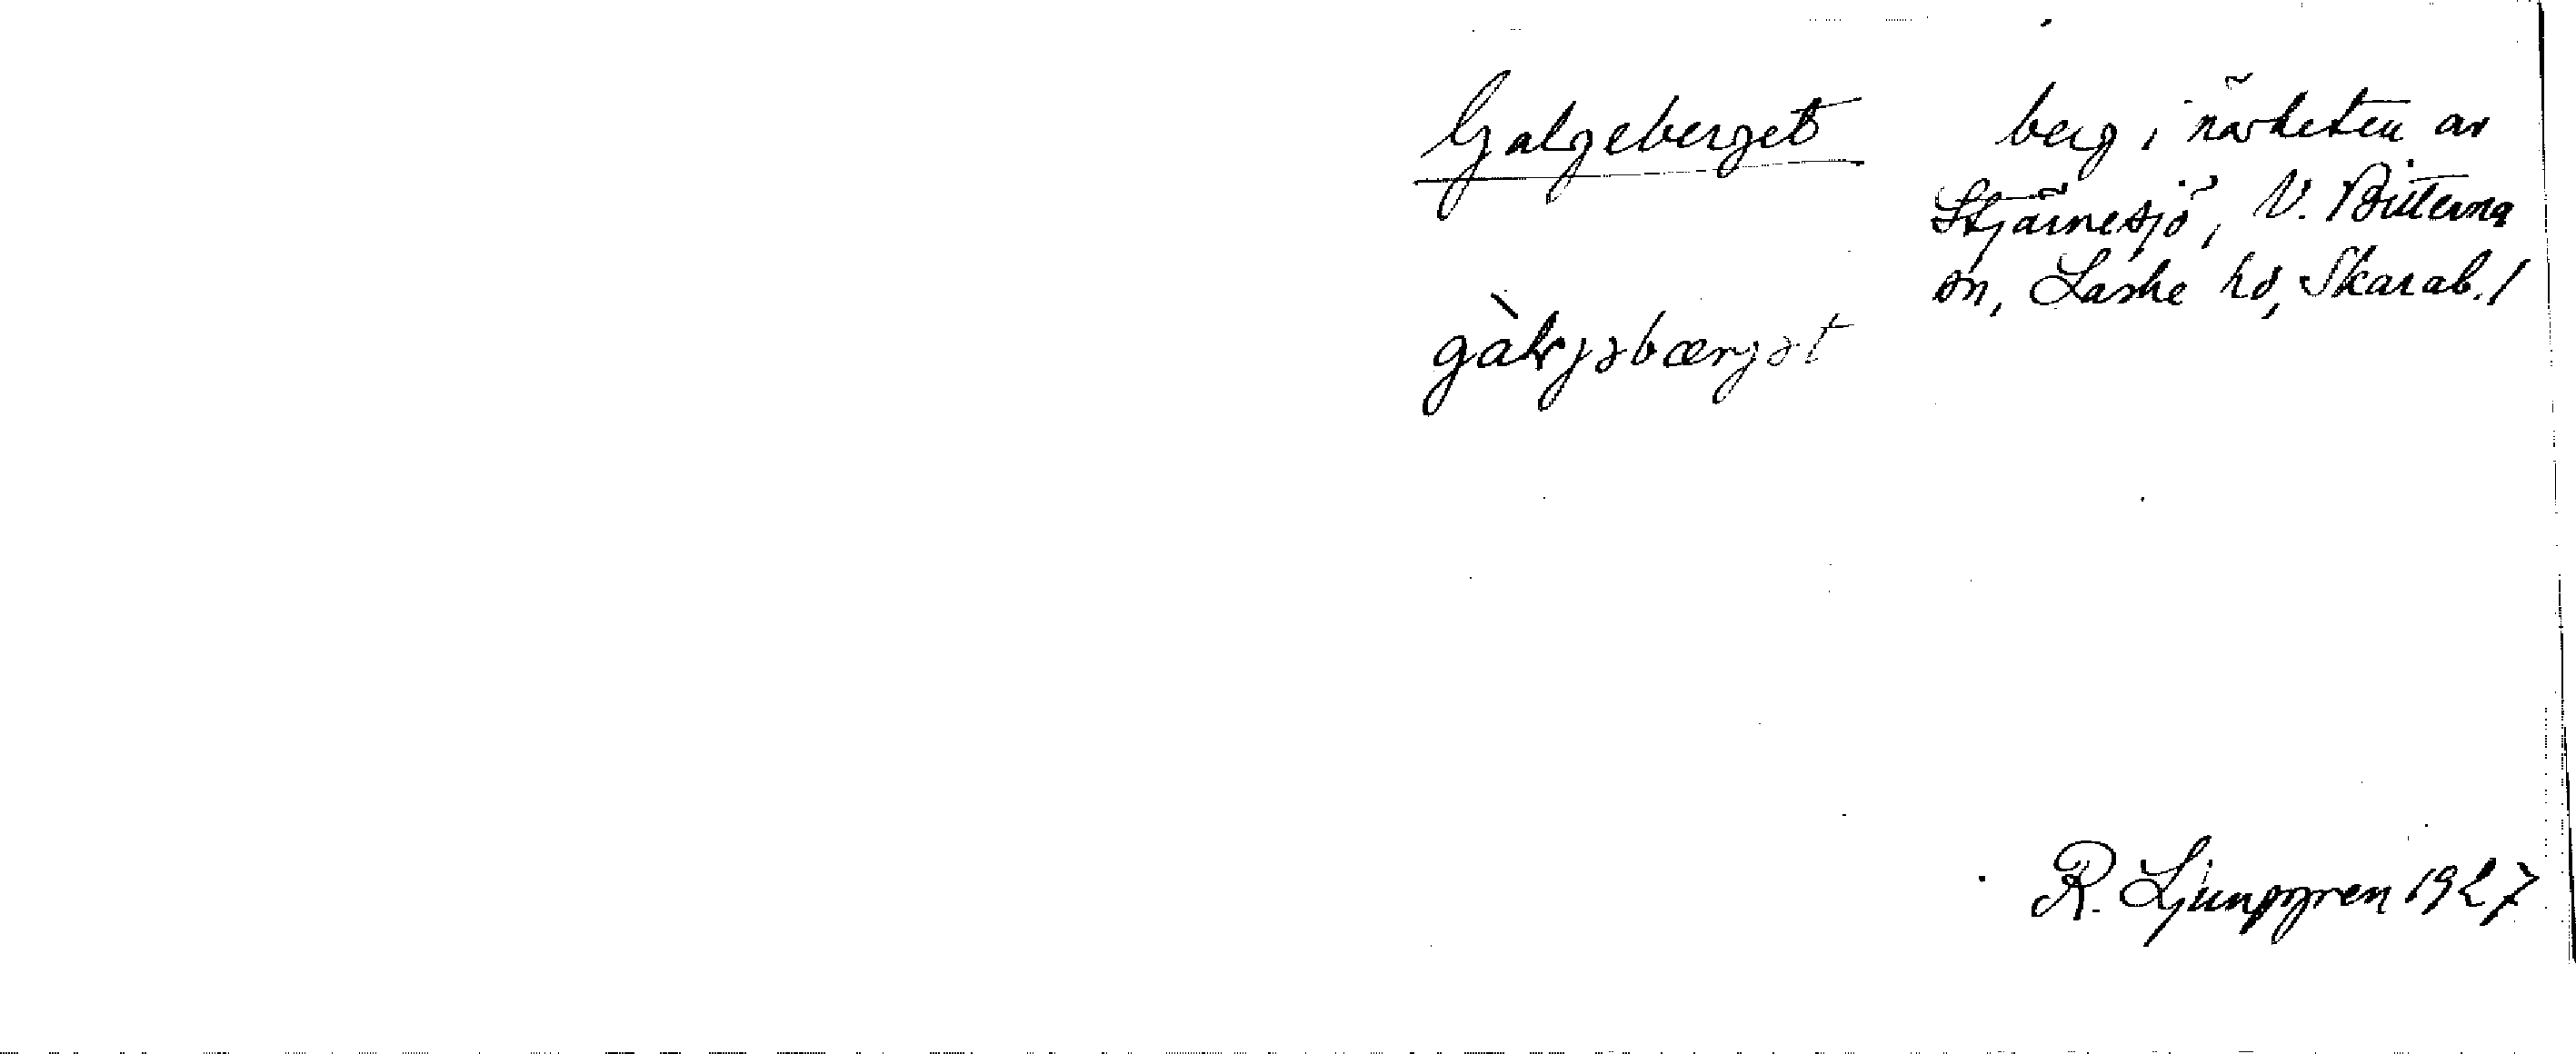 Galgeberget
gàlrjəbærjət
berg i närheten av
Stjärnesjö, V. Bitterna
sn, Laske hd, Skarab./
R. Ljunggren 1927